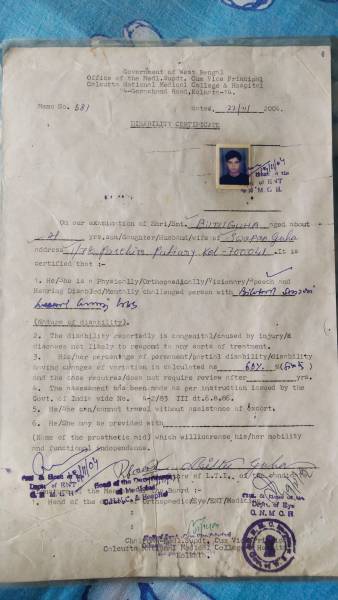 Government of West Bengal
Office of the Medl.Supdt. Cum Vice Principal
Calcutta National Medical College & Hospital
Gorachand Road, Kolkata-14.
Memo No. 581 dated, 22/11/2004.
DISABILITY CERTIFICATE
On our examination of Shri/Smt. BUTU GUHA aged about
21 yrs.son/daughter/Husband/wife of Swapan Guha
address 1/78 Paschim Putiary Kol-700041. It is
certified that :-
1. He/She is a Physically/Orthopaedically/Visionary/Speech and
Hearing Disabled/Mentally challenged person with Bilateral
(Nature of disability).
2. The disability reportedly is congenital/caused by injury/a
disease not likely to respond to any sorts of treatment.
3. His/her percentage of permanent/partial disability/disability
having changes of variation in calculated as 60% %(
and the case required/does not require review after yrs.
4. The assessment had been made as per instruction issued by the
Govt. of India wide No. 4-2/83 III dt.6.8.86.
5. He/She can/cannot travel without assistance of escort.
6. He/She may be provided with
(Name of the prosthetic aid) which will increase his/her mobility
and functional independence.
Guha
of L.T.I. of the
Prof. & Head of the
Dept. of ENT
C. N. M. C. H
Head of the Department
of Medicine
& Hospital
Prof. & Head of the
Dept. of Eye
C. N. M. C. H
Head of the Orthopaedic/Eye/ENT/Medicine
Medl.Supdt. Cum Vice Principal
Calcutta National Medical College & Hospital
Kolkata